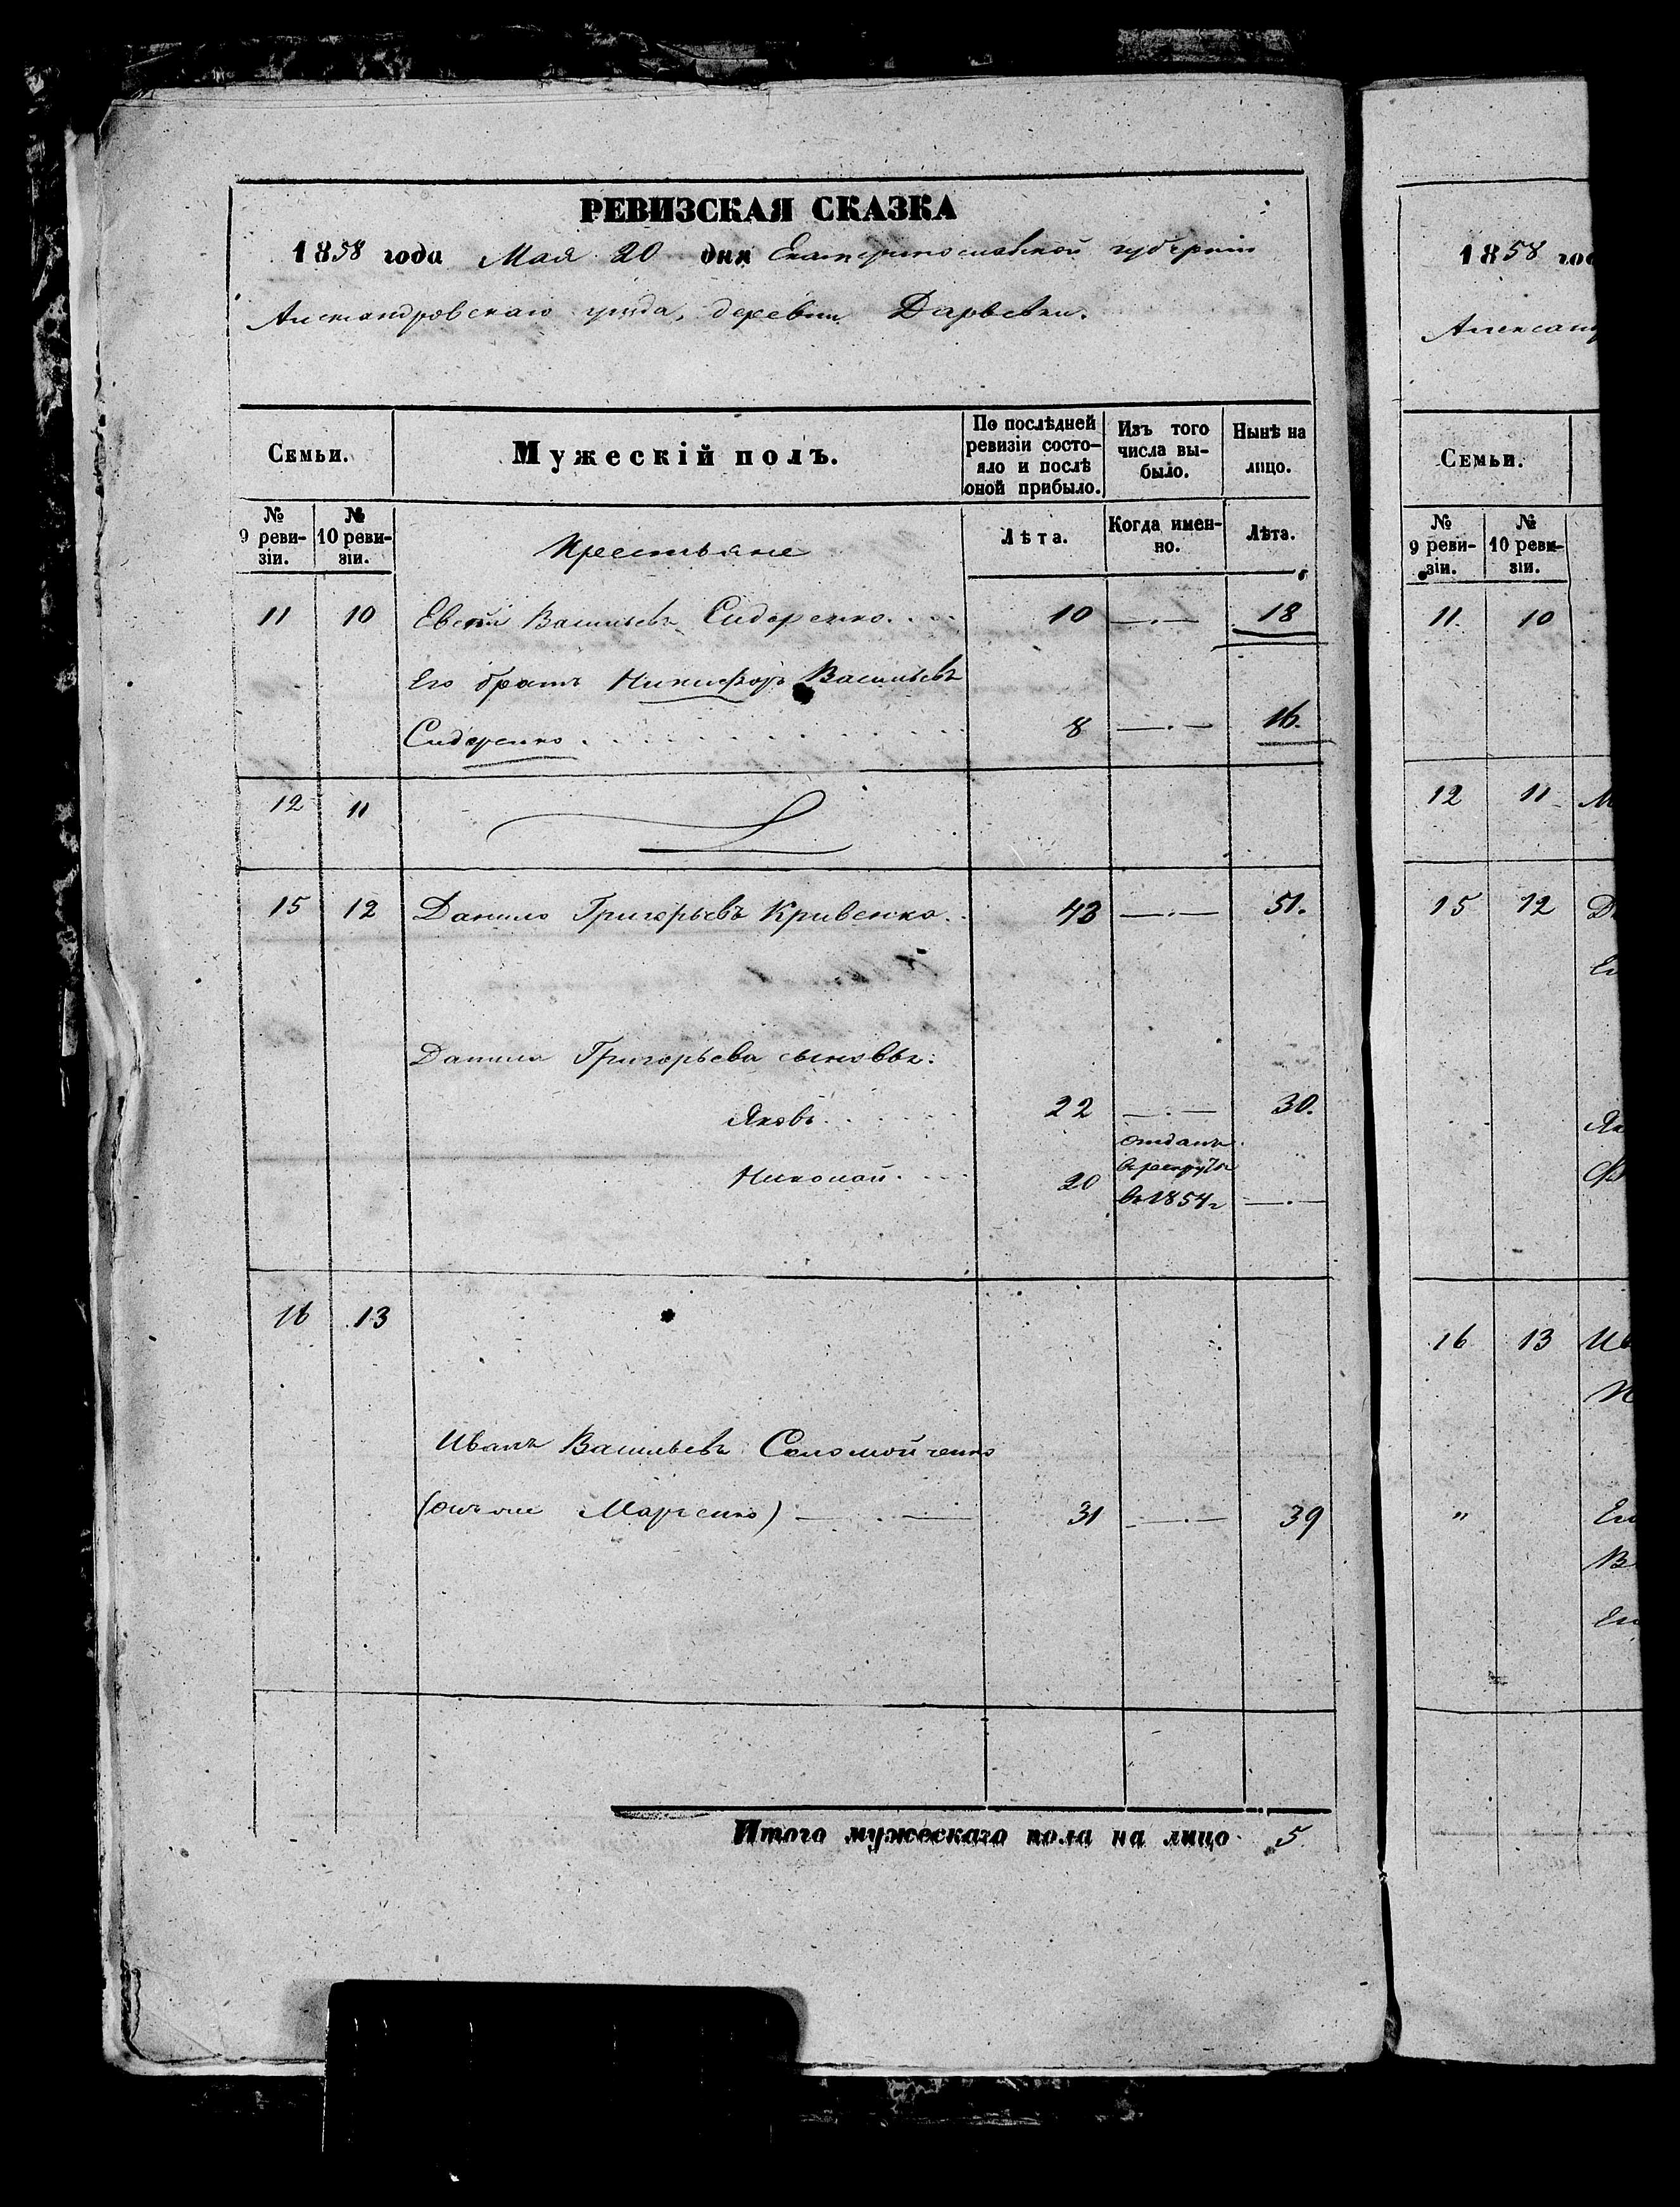 РЕВИЗСКАЯ СКАЗКА
1858 года Мая 20 дня Екатеринославской губерніи
Александровскаго уѣзда, деревни
Семьи.
Мужескій полъ.
По послѣдней ревизіи состояло и послѣ оной прибыло.
Изъ того числа выбыло.
Нынѣ на лицо.
№ 9 ревизіи.
№ 10 ревизіи.
Крестьяне
Лѣта.
Когда именно.
Лѣта.
11 10 Васильевъ Сидоренко. 10 —.— 18
Его братъ Никифоръ Васильевъ
Сидоренко 8 —.— 16.
12 11
15 12 Данило Григорьевъ Кривенко. 43 —.— 51.
Данила Григорьева сыновья:
Яковъ 22 —.— 30.
Николай 20 отданъ в рекруты въ 1854 г —.—
16 13
Иванъ Васильевъ Соломойченко
(онъ же Марченко) 31 —.— 39
Итого мужескаго пола на лицо 5
1858 го
Александ
Семьи.
№ 9 ревизіи.
№ 10 ревизіи.
11. 10
12 11
15 12
16 13
"